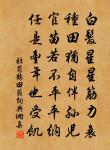 白髮星星筋力衰
種田猶自伴孫兒
官苗若不平平納
任是豐年也受飢
杜荀鶴田翁詞典網書